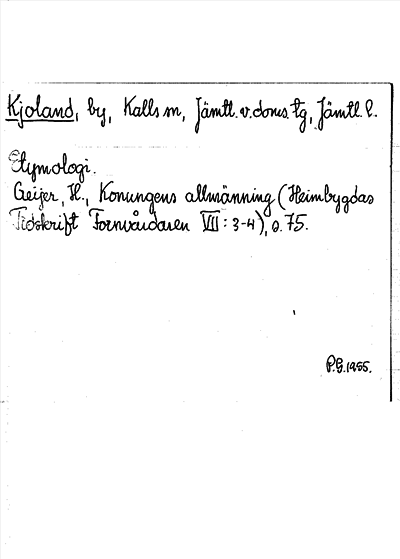 Kjoland, by, Kalls sn, Jämtl. v. doms. tg, Jämtl. l.
Etymologi.
Geijer, H., Konungens allmänning (Heimbygdas
Tidskrift Fornvårdaren VII: 3-4), s. 75.
P.G. 1955.